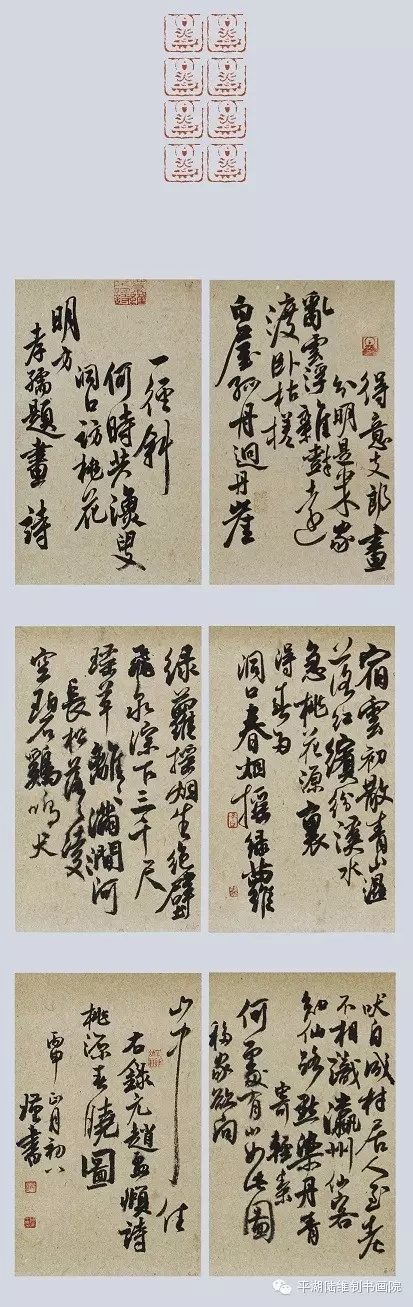 得意支郎畫
分明是米家
亂雲浮雜樹遠
渡臥枯槎
白屋孤舟迥丹崖
一徑斜
何時共漁叟
洞口訪桃花
明方
孝孺題畫詩
宿雲初散青山濕
落紅繽紛溪水
急桃花源裏
得春多
洞口春烟搖綠蘿
綠蘿搖烟生絕壁
飛泉淙下三千尺
瑤草離離滿澗阿
長松落落凌
空碧鷄鳴犬
吠自成村居人至老
不相識瀛洲仙客
知仙路點染丹青
寄輕素
何處有山如此圖
移家欲向
山中住
右錄元趙孟頫詩
桃源春曉圖
丙申正月初八
書
平湖陆维钊书画院